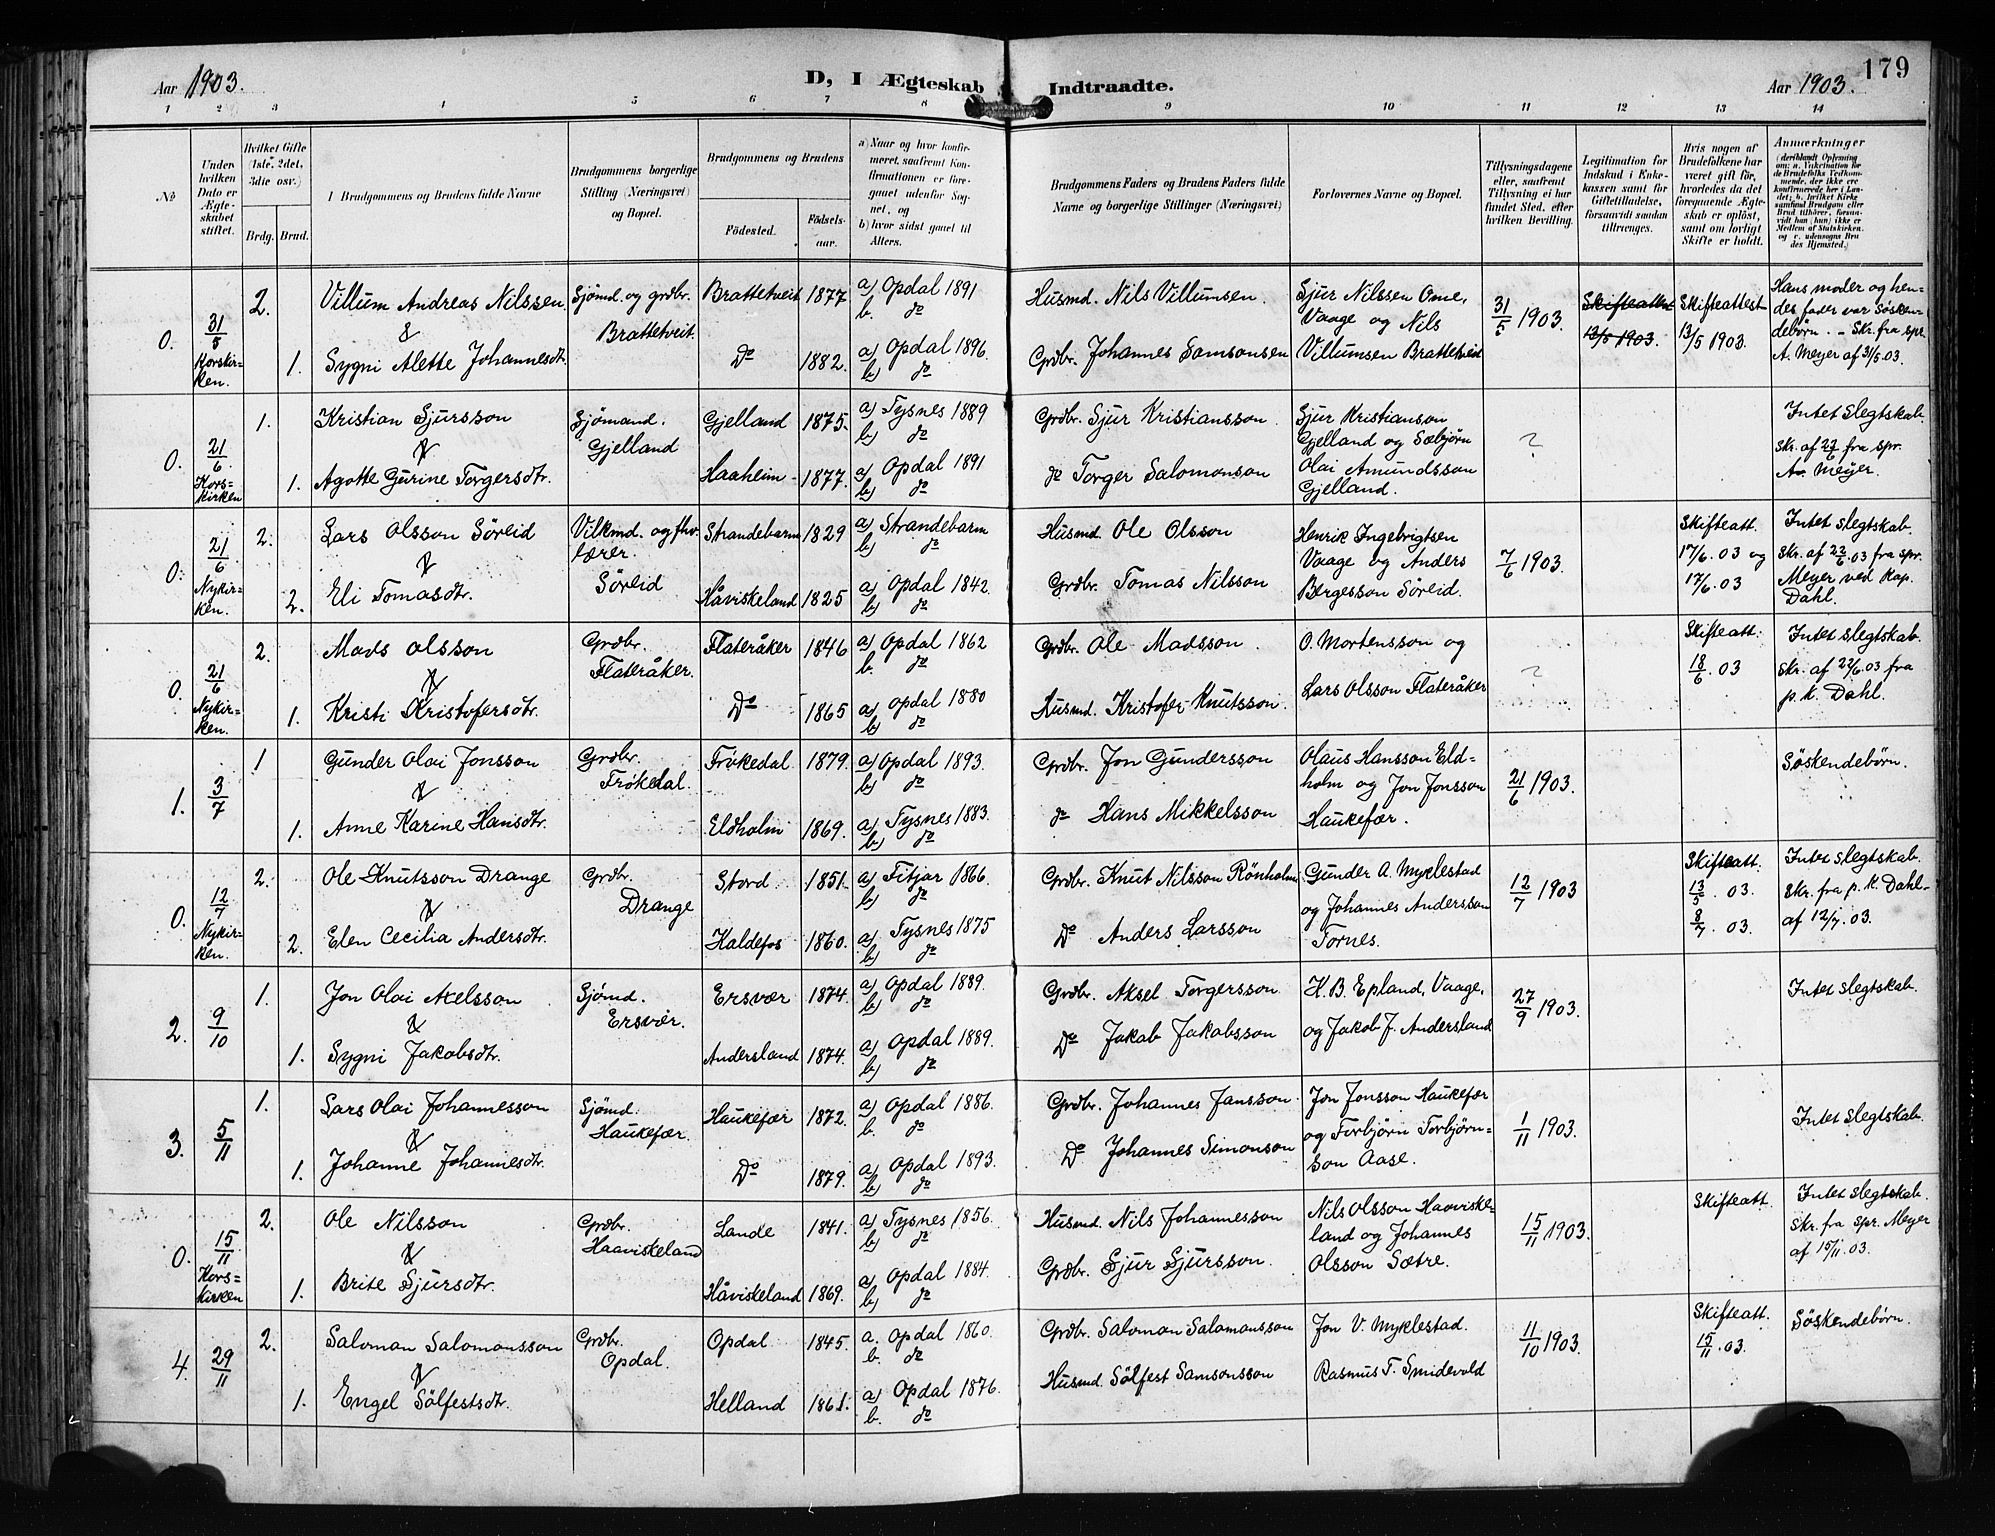 179
Aar 1903.
D, I Ægteskab Indtraadte.
Aar 1903.
1 2 3 4 5 6 7 8 9 10 11 12 13 14
No
Under hvilken Dato er Ægteskabet stiftet.
Hvilket Gifte (1ste, 2det, 3die osv.)
Brdg. Brud.
Brudgommens og Brudens fulde Navne
Brudgommens borgerlige Stilling (Næringsvei) og Bopæl.
Brudgommens og Brudens
Födested.
Födselsaar.
a) Naar og hvor konfirmeret, saafremt Konfirmationen er foregaaet udenfor Sognet, og
b) hvor sidst gaaet til Alters.
Brudgommens Faders og Brudens Faders fulde Navne og borgerlige Stillinger (Næringsvei)
Forlovernes Navne og Bopæl.
Tillysningsdagene eller, saafremt Tillysning ei har fundet Sted, efter hvilken Bevilling.
Legitimation for Indskud i Enkekassen samt for Giftetilladelse, forsaavidt saadan tiltrænges.
Hvis nogen af Brudefolkene har været gift før, hvorledes da det foregaaende Ægteskab er opløst, samt om lovligt Skifte er holdt.
Anmærkninger
0. 31/5 Korskirken. 2. Villum Andreas Nilssen Sjømd. og grdbr. Brattetveit 1877 a) Opdal 1891 Husmd. Nils Villumsen. Sjur Nilssen Ome, 31/5 1903. Skifteattest Skifteattest Hans moder og hen-
& Brattetveit. b. do Vaage og Nils 13/5 1903. 13/5 1903. des fader var Søsken-
1. Sygni Alette Johannesdtr. Do 1882. a) Opdal 1896. Grdbr. Johannes Samsonsen Villumsen Brattetveit debørn. - Skr. fra spr.
b) do A. Meyer af 31/5.03.
0. 21/6 Korskirken 1. Kristian Sjursson Sjømand. Gjelland 1875. a) Tysnes 1889 Grdbr. Sjur Kristiansson Sjur Kristianson ? Intet slegtskab.
& Gjelland b) do Gjelland og Sæbjørn Skr. af 22/6 fra spr.
1. Agotte Gurine Torgersdtr. Haaheim 1877. a) Opdal 1891 do Torger Salomonson Olai Amundsson A. Meyer.
b) do Gjelland.
0. 21/6 Nykirken. 2. Lars Olsson Söreid Vilkmd. og Strandebarm 1829 a) Strandebarm Husmd. Ole Olsson Henrik Ingebrigtsen 7/6 1903. Skifteatt. Intet slegtskab.
& Söreid b) do Vaage og Anders 17/6.03 og Skr. af 22/6.03 fra spr.
2. Eli Tomasdtr. Håviskeland 1825 a) Opdal 1842. Grdbr. Tomas Nilsson Bergesson Söreid. 17/6.03 Meyer ved kap.
b) do Dahl.
0. 21/6 Nykirken. 2. Mads Olsson Grdbr. Flateråker 1846 a) Opdal 1862 Grdbr. Ole Madsson. O. Mortensson og ? Skifteatt: Intet slegtskab.
& Flateråker. b. do Lars Olsson Flateråker 18/6.03 Skr. af 22/6.03 fra
1. Kristi Kristofersdtr. Do 1865 a) Opdal 1880 Husmd. Kristofer Knutsson. p. k. Dahl.
b) do
1. 3/7 1 Gunder Olai Jonsson Grdbr. Frökedal 1879. a) Opdal 1893. Grdbr. Jon Gundersson Olaus Hansson Eld- 21/6 1903. Söskendebørn.
& Frökedal. b) do holm og Jon Jonsson
1. Anne Karine Hansdtr. Eldholm 1869. a) Tysnes 1883. do Hans Mikkelsson Haukefær.
b) do
0. 12/7 Nykirken. 2. Ole Knutsson Drange Grdbr. Stord 1851. a) Fitjar 1866. Grdbr. Knut Nilsson Rönholm Gunder A. Myklestad 12/7 1903 Skifteatt. Intet slegtskab.
& Drange b) do og Johannes Andersson 13/5. 03. Skr. fra p. k. Dahl
2. Elen Cecilia Andersdtr. Haldefos 1860. a) Tysnes 1875 Do Anders Larsson Tornes. 8/7. 03. af 12/7.03.
b) do
2. 9/10 1. Jon Olai Axelsson Sjømd. Ersvær 1874. a) Opdal 1889. Grdbr. Aksel Torgersson H. B. Epland, Vaage, 27/9 1903. Intet slegtskab.
& Ersvær. b) do og Jakob J. Andersland
1. Sygni Jakobsdtr. Andersland 1874. a) Opdal 1889. Do Jakob Jakobsson
b) do
3. 5/11 1. Lars Olai Johannesson Sjømd. Haukefær 1872. a) Opdal 1886. Grdbr. Johannes Jansson. Jon Jonsson Haukefær 1/11 1903. Intet slegtskab.
& Haukefær. b. do og Torbjörn Torbjörn-
1. Johanne Johannesdtr. Do 1879. a) Opdal 1893. Do Johannes Simonson son Aase.
b) do
0. 15/11 Korskirken 2. Ole Nilsson Grdbr. Lande 1841. a) Tysnes 1856. Husmd. Nils Johannesson Nils Olsson Haaviske- 15/11 1903. Skifteatt. Intet slegtskab.
& Haaviskeland b) do land og Johannes Skr. fra spr. Meyer
1. Brite Sjursdtr. Håviskeland 1869. a) Opdal 1884. Grdbr. Sjur Sjursson. Olsson Sætre. af 15/11.03.
b) do
4. 29/11 2. Saloman Salomonsson Grdbr. Opdal 1845. a. Opdal 1860. Grdbr. Saloman Salamonsson Jon V. Myklestad. 11/10 1903. Skifteatt. Söskendebørn.
& Opdal. b. do Rasmus T. Smidevold 15/11.03.
1. Engel Sölfestsdtr. Helland 1861. a) Opdal 1876. Husmd. Sölfest Samsonsson
b. do